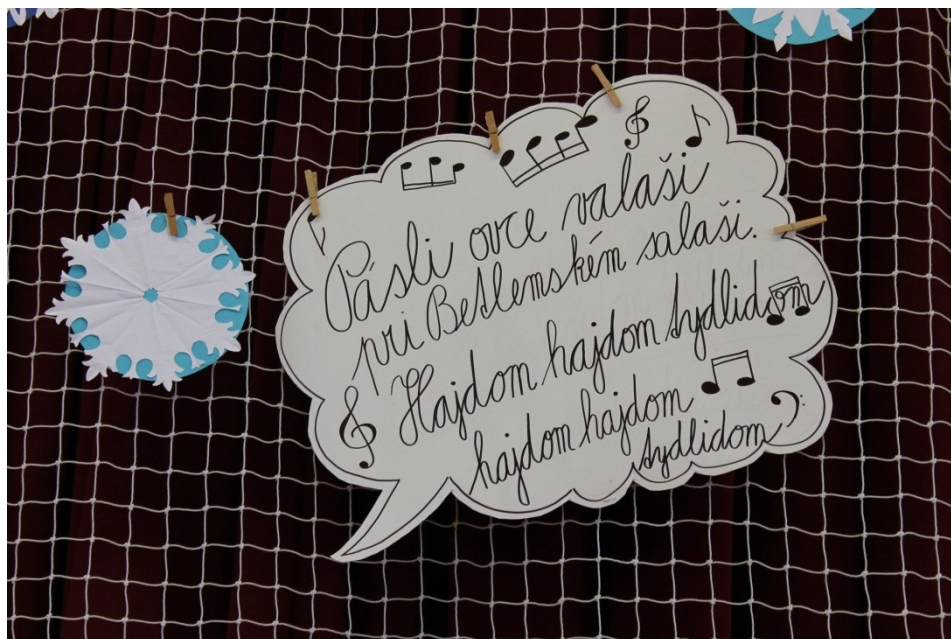 Pásli ovce valaši
pri Betlemském salaši.
Hajdom hajdom tydlidom
hajdom hajdom
tydlidom